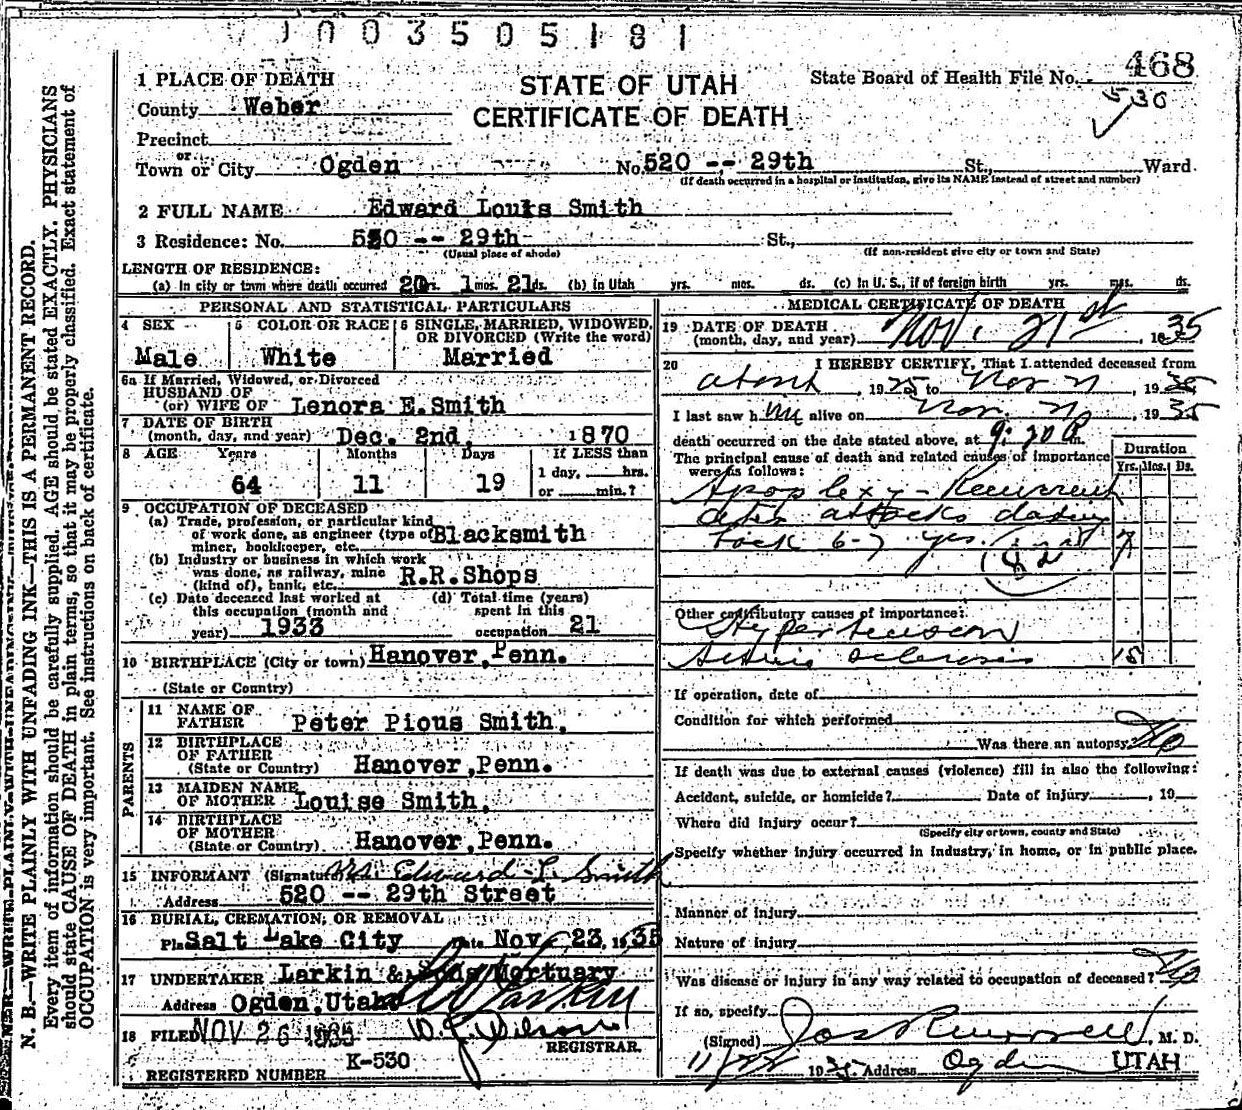 1003505181
STATE OF UTAH
CERTIFICATE OF DEATH
State Board of Health File No. 468
530
1 PLACE OF DEATH
County Weber
Precinct
or
Town or City Ogden No. 520 -- 29th St., Ward
(If death occurred in a hospital or institution, give its NAME instead of street and number)
2 FULL NAME Edward Louis Smith
3 Residence: No. 520 -- 29th St.,
(Usual place of abode) (If non-resident give city or town and State)
LENGTH OF RESIDENCE:
(a) In city or town where death occurred 20 yrs. 1 mos. 21 ds. (b) in Utah yrs. mos. ds. (c) In U. S., if of foreign birth yrs. mos. ds.
PERSONAL AND STATISTICAL PARTICULARS
4 SEX Male
5 COLOR OR RACE White
6 SINGLE, MARRIED, WIDOWED, OR DIVORCED (Write the word) Married
6a If Married, Widowed, or Divorced
HUSBAND OF
(or) WIFE OF Lenora E. Smith
7 DATE OF BIRTH
(month, day, and year) Dec. 2nd, 1870
8 AGE Years 64 Months 11 Days 19 If LESS than
1 day, hrs.
or min.?
9 OCCUPATION OF DECEASED
(a) Trade, profession, or particular kind
of work done, as engineer (type of Blacksmith
miner, bookkeeper, etc.
(b) Industry or business in which work
was done, as railway, mine R.R.Shops
(kind of), bank, etc.
(c) Date deceased last worked at
this occupation (month and
year) 1933
(d) Total time (years)
spent in this
occupation 21
10 BIRTHPLACE (City or town) Hanover, Penn.
(State or Country)
PARENTS
11 NAME OF
FATHER Peter Pious Smith,
12 BIRTHPLACE
OF FATHER
(State or Country) Hanover, Penn.
13 MAIDEN NAME
OF MOTHER Louise Smith,
14 BIRTHPLACE
OF MOTHER
(State or Country) Hanover, Penn.
15 INFORMANT (Signature) Mrs. Edward L. Smith
Address 520 -- 29th Street
16 BURIAL, CREMATION, OR REMOVAL
Place Salt Lake City Date Nov. 23, 1935
17 UNDERTAKER Larkin & Sons Mortuary
Address Ogden, Utah
18 FILED NOV 26 1935
REGISTRAR.
K-530
REGISTERED NUMBER
MEDICAL CERTIFICATE OF DEATH
19 DATE OF DEATH
(month, day, and year) Nov. 21st, 1935
20 I HEREBY CERTIFY, That I attended deceased from
about, 1925 to Nov 21, 1935
I last saw him alive on Nov. 21, 1935
death occurred on the date stated above, at 9:20 m.
The principal cause of death and related causes of importance
were as follows:
Duration
Yrs. Mos. Ds.
Apoplexy - Recurrent
attacks dating
back 6-7 yrs. 7
82
Other contributory causes of importance:
Hypertension
sclerosis 15
If operation, date of
Condition for which performed
Was there an autopsy? No
If death was due to external causes (violence) fill in also the following:
Accident, suicide, or homicide? Date of injury, 19
Where did injury occur?
(Specify city or town, county and State)
Specify whether injury occurred in industry, in home, or in public place.
Manner of injury
Nature of injury
Was disease or injury in any way related to occupation of deceased? No
If so, specify
(Signed) , M. D.
11/22 1935 Address Ogden UTAH
N. B.—WRITE PLAINLY WITH UNFADING INK—THIS IS A PERMANENT RECORD.
Every item of information should be carefully supplied. AGE should be stated EXACTLY. PHYSICIANS
should state CAUSE OF DEATH in plain terms, so that it may be properly classified. Exact statement of
OCCUPATION is very important. See instructions on back of certificate.